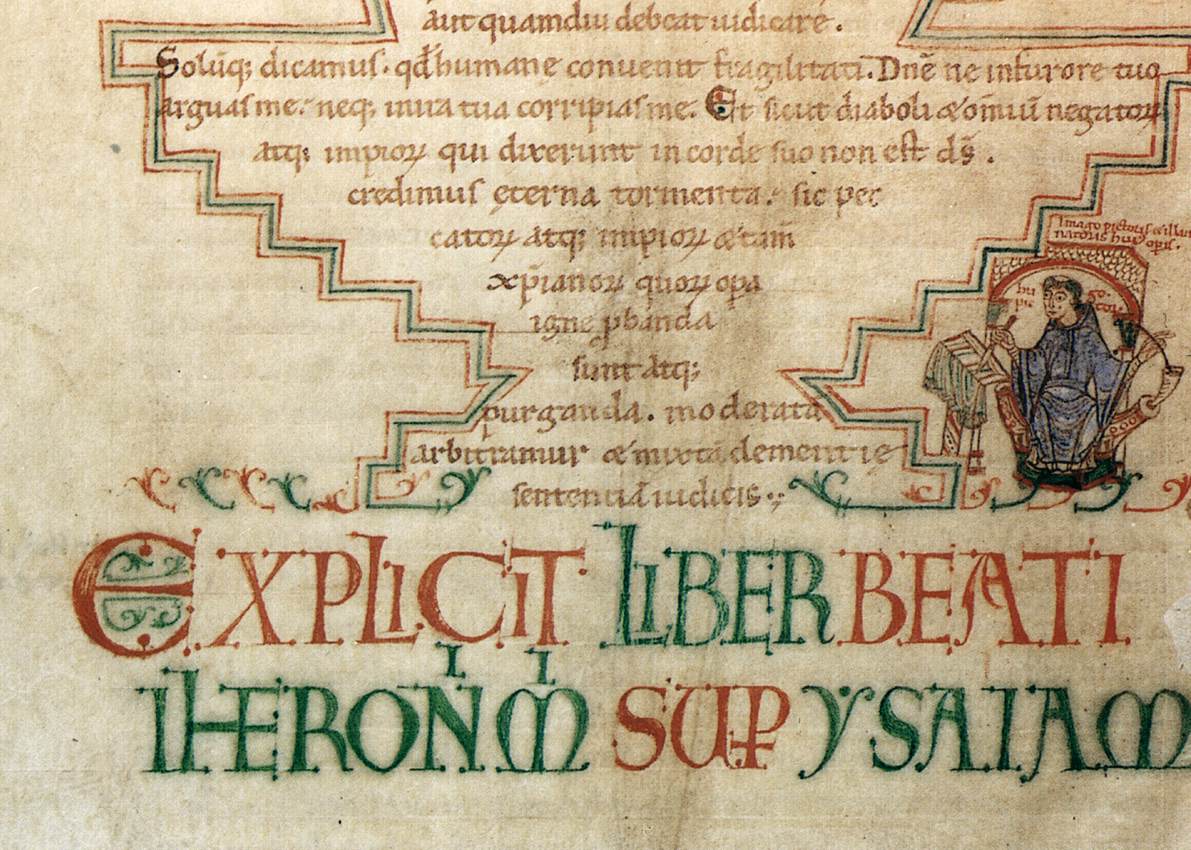 aut quamdiu debeat iudicare.
Solūq; dicamus. qđ humane conuenit fragilitati. Dnē ne in furore tuo
arguas me. neq; in ira tua corripias me. Et sicut diaboli & om̄iū negatoꝝ
atq; impioꝝ qui dixerunt in corde suo non est ds̄.
credimus ęterna tormenta. sic pec
catoꝝ atq; impioꝝ & tam̄
xp̄ianoꝝ quoꝝ opa
igne ꝓbanda
sunt atq;
purganda. moderatā
arbitramur & mixtā clementię
sententiā iudicis.
Imago pictoris & illumi
natoris huius operis.
hu go
pic tor
EXPLICIT LIBER BEATI
IHERONIMI SUꝐ YSAIAM